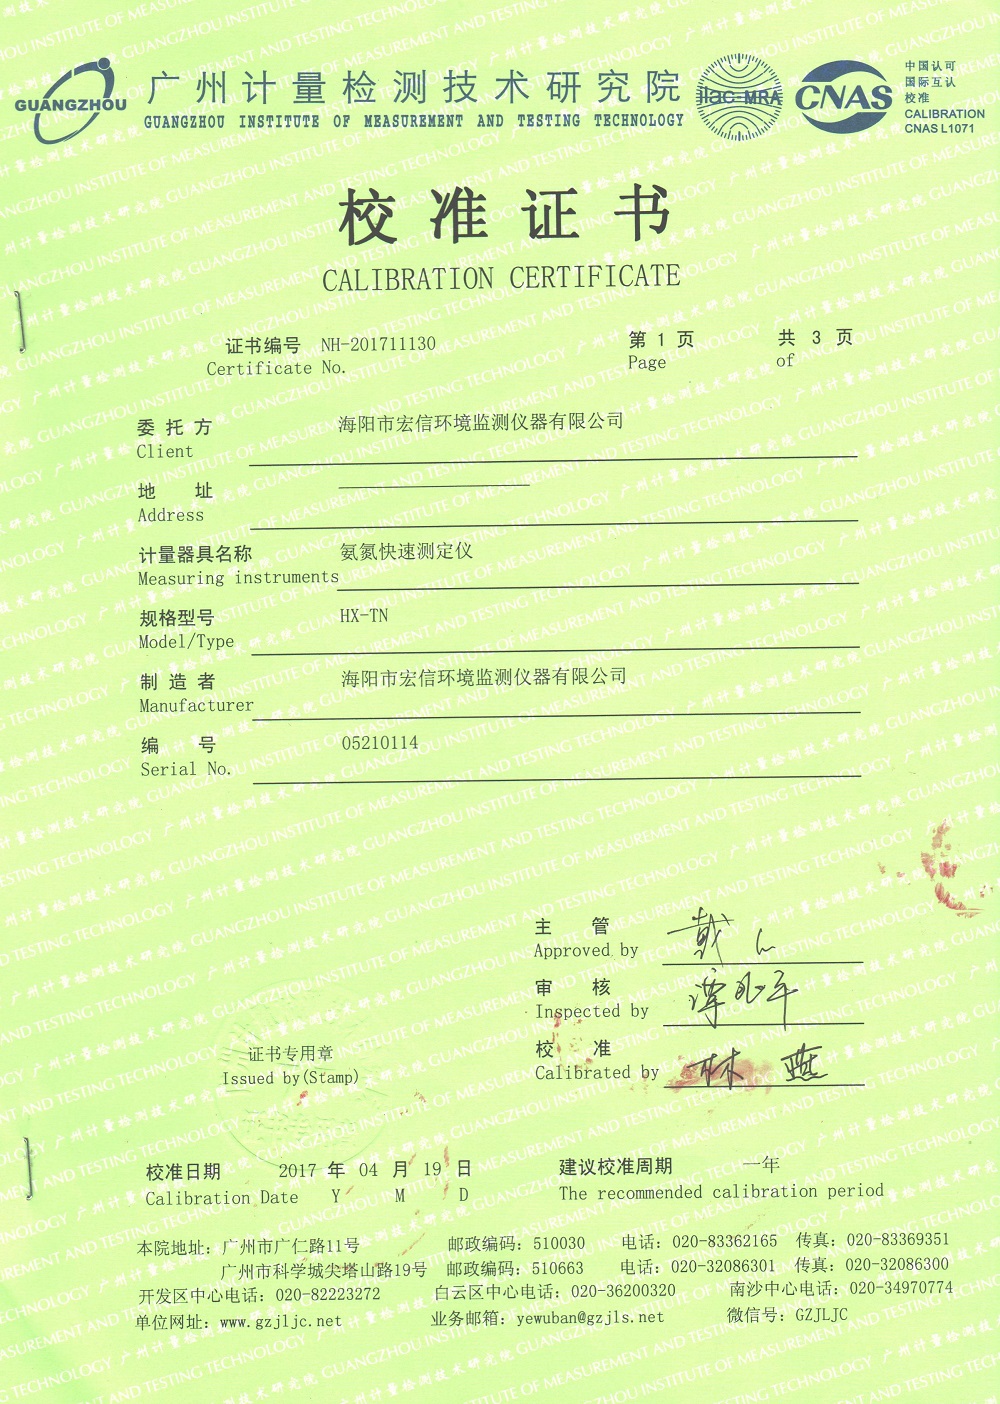 GUANGZHOU
广州计量检测技术研究院
GUANGZHOU INSTITUTE OF MEASUREMENT AND TESTING TECHNOLOGY
ilac-MRA
CNAS
中国认可
国际互认
校准
CALIBRATION
CNAS L1071
校准证书
CALIBRATION CERTIFICATE
证书编号 NH-201711130 第 1 页 共 3 页
Certificate No. Page of
委托方 海阳市宏信环境监测仪器有限公司
Client
地址
Address
计量器具名称 氨氮快速测定仪
Measuring instruments
规格型号 HX-TN
Model/Type
制造者 海阳市宏信环境监测仪器有限公司
Manufacturer
编号 05210114
Serial No.
主管
Approved by
审核
Inspected by
校准 林燕
Calibrated by
证书专用章
Issued by(Stamp)
校准日期 2017 年 04 月 19 日 建议校准周期 一年
Calibration Date Y M D The recommended calibration period
本院地址：广州市广仁路11号 邮政编码：510030 电话：020-83362165 传真：020-83369351
广州市科学城尖塔山路19号 邮政编码：510663 电话：020-32086301 传真：020-32086300
开发区中心电话：020-82223272 白云区中心电话：020-36200320 南沙中心电话：020-34970774
单位网址：www.gzjljc.net 业务邮箱：yewuban@gzjls.net 微信号：GZJLJC